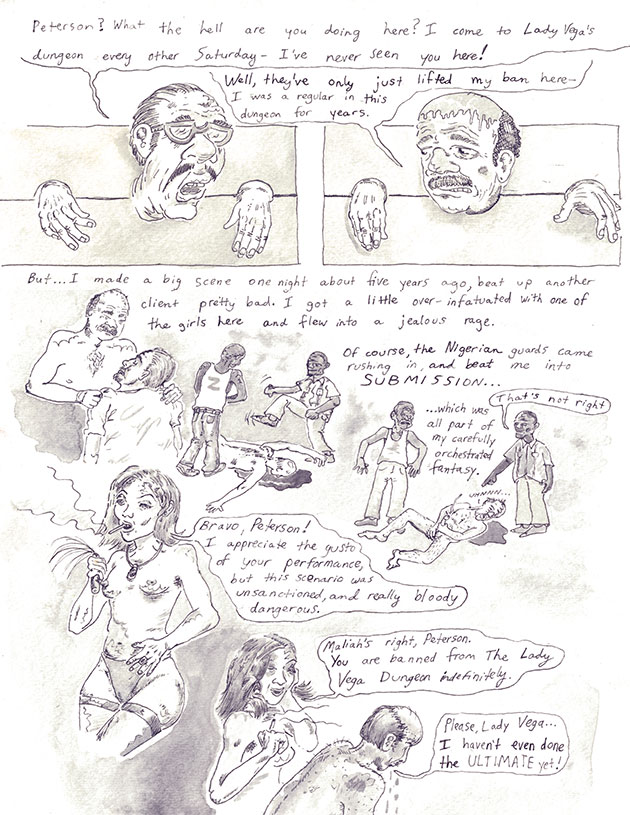 Peterson? What the hell are you doing here? I come to Lady Vega's
dungeon every other Saturday- I've never seen you here!
Well, they've only just lifted my ban here-
I was a regular in this
dungeon for years.
But...I made a big scene one night about five years ago, beat up another
client pretty bad. I got a little over-infatuated with one of
the girls here and flew into a jealous rage.
Of course, the Nigerian guards came
rushing in, and beat me into
SUBMISSION...
Z
...which was
all part of
my carefully
orchestrated
fantasy.
That's not right
UHNNN...
Bravo, Peterson!
I appreciate the gusto
of your performance,
but this scenario was
unsanctioned, and really bloody
dangerous.
Maliah's right, Peterson.
You are banned from The Lady
Vega Dungeon indefinitely.
Please, Lady Vega...
I haven't even done
the ULTIMATE yet!